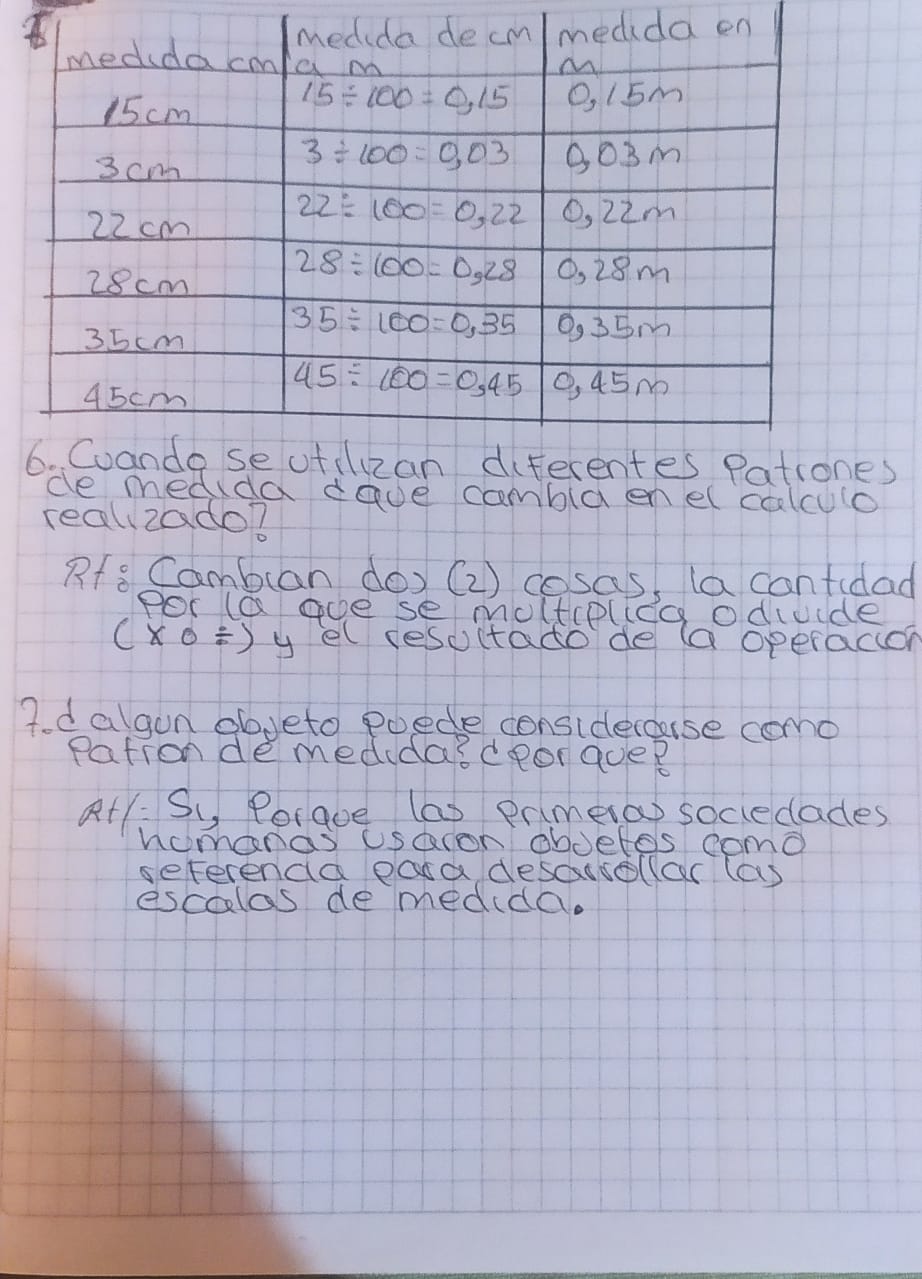 medida cm | medida de cm a m | medida en m
15cm | 15 ÷ 100 = 0,15 | 0,15m
3cm | 3 ÷ 100 = 0,03 | 0,03m
22cm | 22 ÷ 100 = 0,22 | 0,22m
28cm | 28 ÷ 100 = 0,28 | 0,28m
35cm | 35 ÷ 100 = 0,35 | 0,35m
45cm | 45 ÷ 100 = 0,45 | 0,45m
6. Cuando se utilizan diferentes Patrones
de medida ¿que cambia en el calculo
realizado?
Rt: Cambian dos (2) cosas, la cantidad
por la que se multiplica o divide
(× o ÷) y el resultado de la operacion
7. ¿algun objeto puede considerarse como
Patron de medida? ¿por que?
Rt/: Si, Porque las primeras sociedades
humanas usaron objetos como
referencia para desarrollar las
escalas de medida.